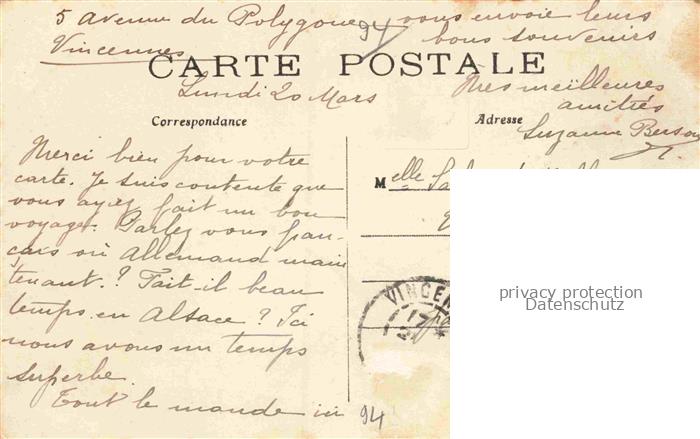 5 avenue du Polygone
Vincennes
94
vous envoie leurs
bons souvenirs
CARTE POSTALE
Lundi 20 Mars
Mes meilleures
amitiés
Suzanne
Correspondance
Adresse
Merci bien pour votre
carte. Je suis contente que
vous ayez fait un bon
voyage. Parlez vous fran-
çais ou Allemand main
tenant ? Fait-il beau
temps en Alsace ? Ici
nous avons un temps
superbe.
Tout le monde ici
94
Melle
VINCEN
17
privacy protection
Datenschutz